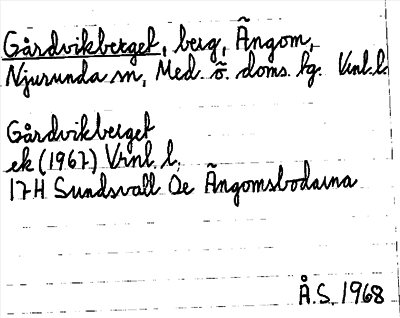 Gårdvikberget, berg, Ängom,
Njurunda sn, Med. ö. doms. tg. Vnl.l.
Gårdvikberget
ek (1967) Vnl. l.
17H Sundsvall Öe Ängomsbodarna
Å.S. 1968